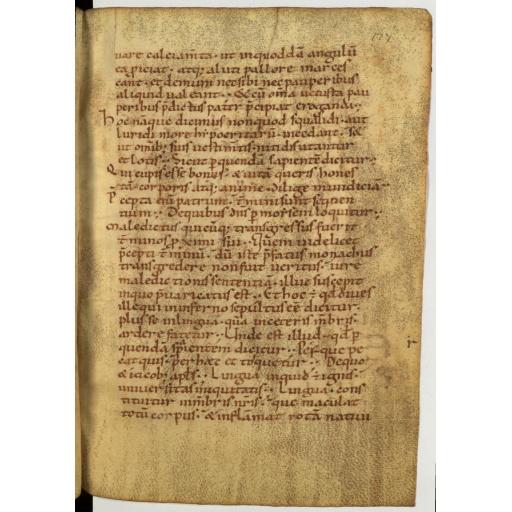 uare calciam̄ta. ut inquoddā angulū
ea piciat. atq; aluti pallore marces
cant. et demum nec sibi nec pauperibus
aliquid ualeant. & cū om̄a uetusta pau
peribus p̄dictus pater p̄cipiat eroganda.
hoc nāque dicimus non quod squalidi. aut
luridi more
ut omib; suis uestim̄tis. nitidis utantur
et lotis. Sicut p quendā sapientē dicitur.
Qui cupis esse bonus. & uitā queris hones
tā. corporis atq; anime. dilige mundicia.
P cepta enī patrum. t̄minī sunt sequen
tium. De quibus dn̄s p moysem loquitur.
maledictus quicūq; transgressus fuerit
t̄minos p xīmi sui. Quem uidelicet
p̄cepti t̄minū. dū iste p̄fatus monachus
transgredere non fuit ueritus. uere
maledictionis sententiā. illuc suscepit
inquo p̄uaricatus est. Et hoc ē qd diues
ille qui in inferno sepultus ee dicitur.
plus se in lingua. quā in ceteris mbris.
ardere fatetur. Unde est illud. qd p
quendā sapientem dicitur. Per que pec
cat quis. per hęc et torquetur. De quo
& iacob; apl̄s. Lingua inquid ē ignis.
uniuersitas iniquitatis. Lingua. cons
tituitur in mbris nr̄is. que maculat
totū corpus. & inflāmat rotā natiui